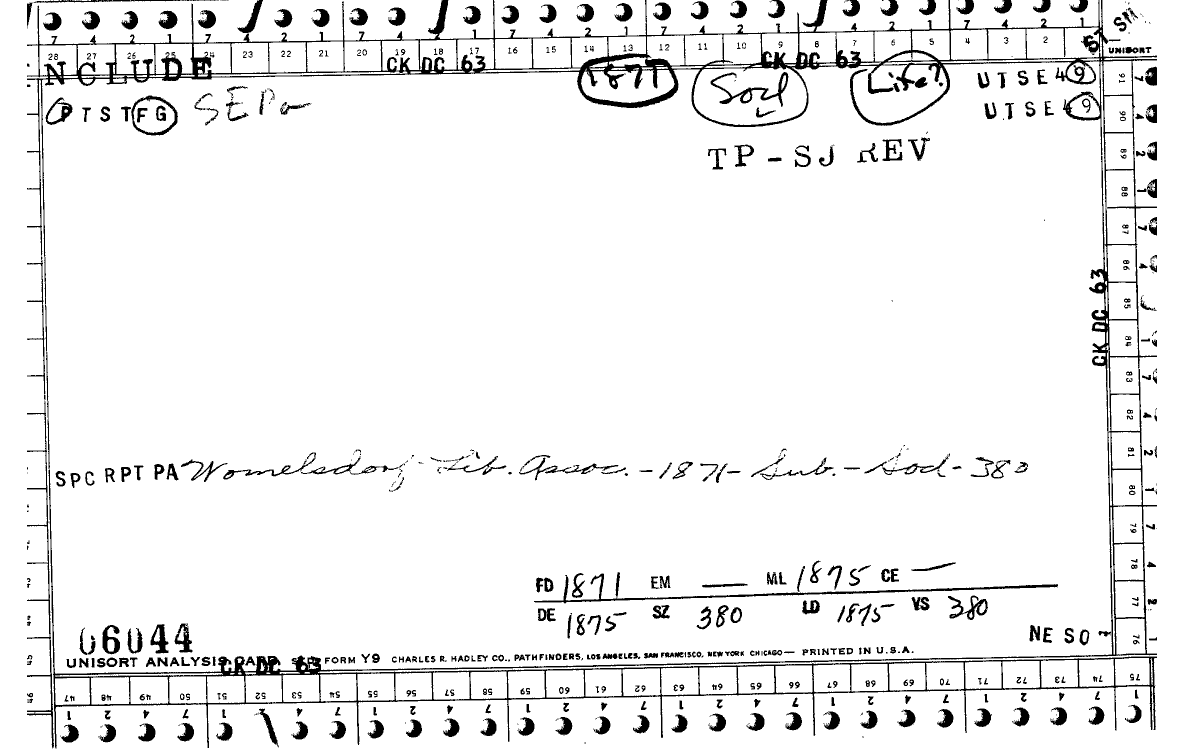 7 4 2 1 7 4 2 1 7 4 2 1 7 4 2 1 7 4 2 1 7 4 2 1 7 4 2 1
28 27 26 25 24 23 22 21 20 19 18 17 16 15 14 13 12 11 10 9 8 7 6 5 4 3 2 UNISORT
NCLUDE CK DC 63 1871 CK DC 63
PTSTFG SEPa Socl Life? UTSE49
UTSE49
TP-SJ REV
CK DC 63
SPC RPT PA Womelsdorf Lib. Assoc. - 1871 - Sub. - Socl - 380
FD 1871 EM — ML 1875 CE —
DE 1875 SZ 380 LD 1875 VS 380
06044 NE SO
UNISORT ANALYSIS CARD FORM Y9 CHARLES R. HADLEY CO., PATHFINDERS, LOS ANGELES, SAN FRANCISCO, NEW YORK CHICAGO— PRINTED IN U.S.A.
CK DC 63
91 90 89 88 87 86 85 84 83 82 81 80 79 78 77 76
47 48 49 50 51 52 53 54 55 56 57 58 59 60 61 62 63 64 65 66 67 68 69 70 71 72 73 74 75
1 2 4 7 1 2 4 7 1 2 4 7 1 2 4 7 1 2 4 7 1 2 4 7 1 2 4 7 1